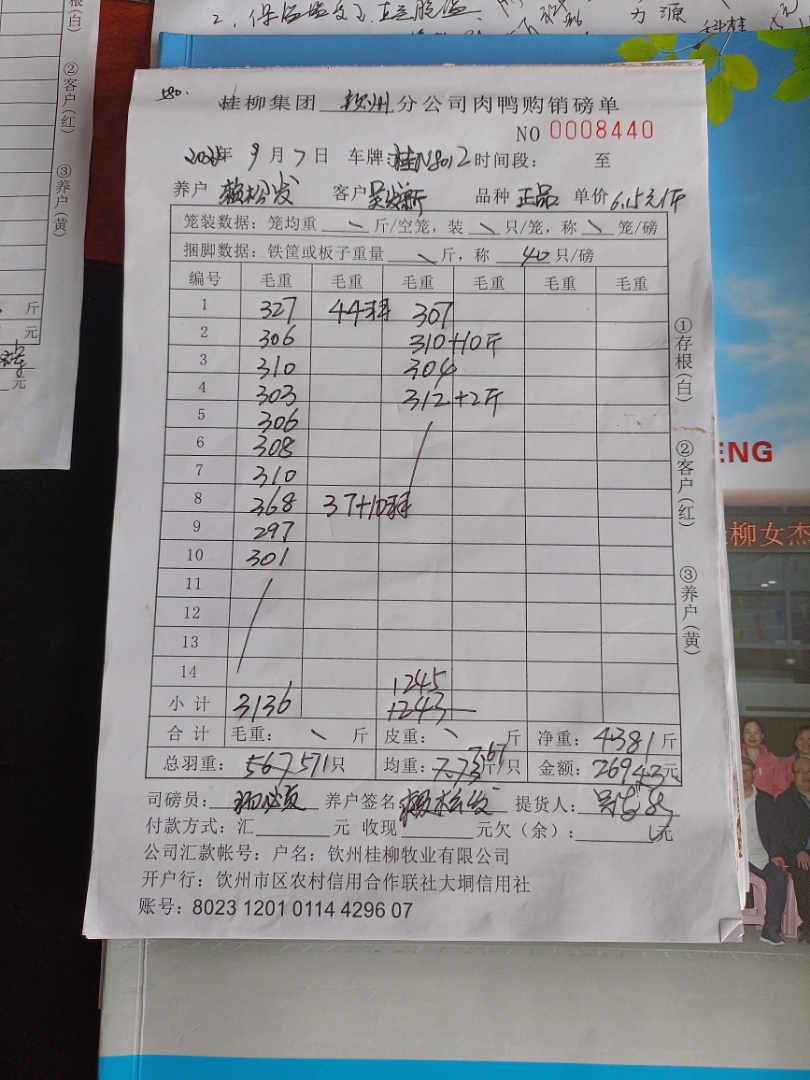 2. 保温
力源
科桂
根(白)
②客户(红)
③养户(黄)
斤
元
元
580.
桂柳集团 钦州 分公司肉鸭购销磅单
NO 0008440
年 9 月 7 日 车牌:桂N8012 时间段: 至
养户 赖松发 客户 品种 正品 单价 6.15元/斤
笼装数据: 笼均重 \ 斤/空笼, 装 \ 只/笼, 称 \ 笼/磅
捆脚数据: 铁筐或板子重量 \ 斤, 称 40 只/磅
编号 毛重 毛重 毛重 毛重 毛重 毛重
1 327 44 307
2 306 310+10斤
3 310 304
4 303 312+2斤
5 306
6 308
7 310
8 368 37+10
9 297
10 301
11
12
13
14 1245
小计 3136 +243
合计 毛重: \ 斤 皮重: \ 斤 净重: 4381 斤
总羽重: 567 571只 均重: 7.73 7.67 斤/只 金额: 26943元
司磅员: 养户签名: 赖松发 提货人:
付款方式: 汇 元 收现 元欠(余): 元
公司汇款帐号: 户名: 钦州桂柳牧业有限公司
开户行: 饮州市区农村信用合作联社大垌信用社
账号: 8023 1201 0114 4296 07
①存根(白)
②客户(红)
③养户(黄)
ENG
柳女杰